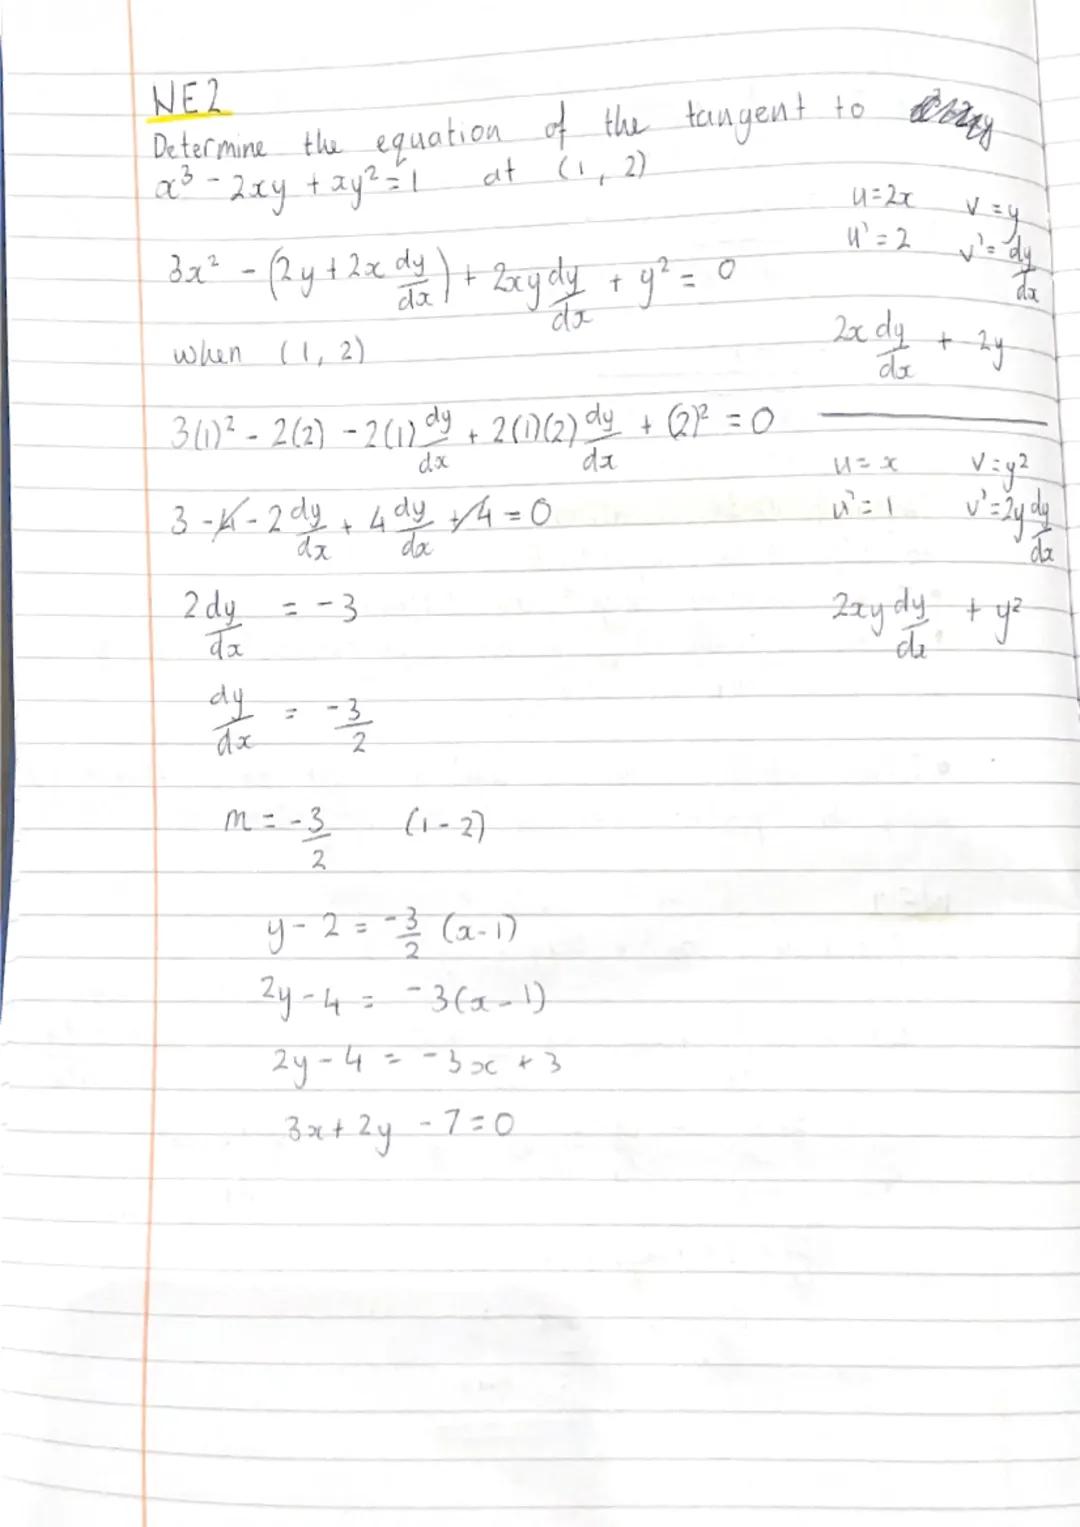 WE2
Determine the equation of the tangent to
x³ - 2xy + xy² = 1 at (1, 2)
u = 2x v = y
u' = 2 v' = dy/dx
3x² - (2y + 2x dy/dx) + 2xy dy/dx + y² = 0
2x dy/dx + 2y
when (1, 2)
3(1)² - 2(2) - 2(1) dy/dx + 2(1)(2) dy/dx + (2)² = 0
u = x v = y²
u' = 1 v' = 2y dy/dx
3 - 4 - 2 dy/dx + 4 dy/dx + 4 = 0
2 dy/dx = -3
2xy dy/dx + y²
dy/dx = -3/2
m = -3/2 (1 - 2)
y - 2 = -3/2 (x - 1)
2y - 4 = -3(x - 1)
2y - 4 = -3x + 3
3x + 2y - 7 = 0